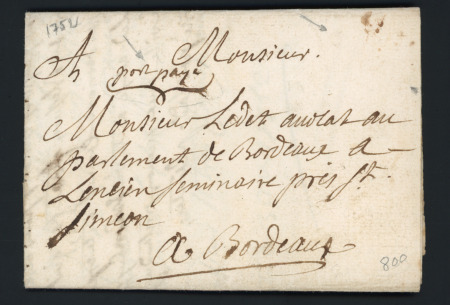 1752
A Monsieur.
port payé
Monsieur Ledet auocat au
parlement de Bordeaux a
Lencien seminaire prés St.
simeon
A Bordeaux
800